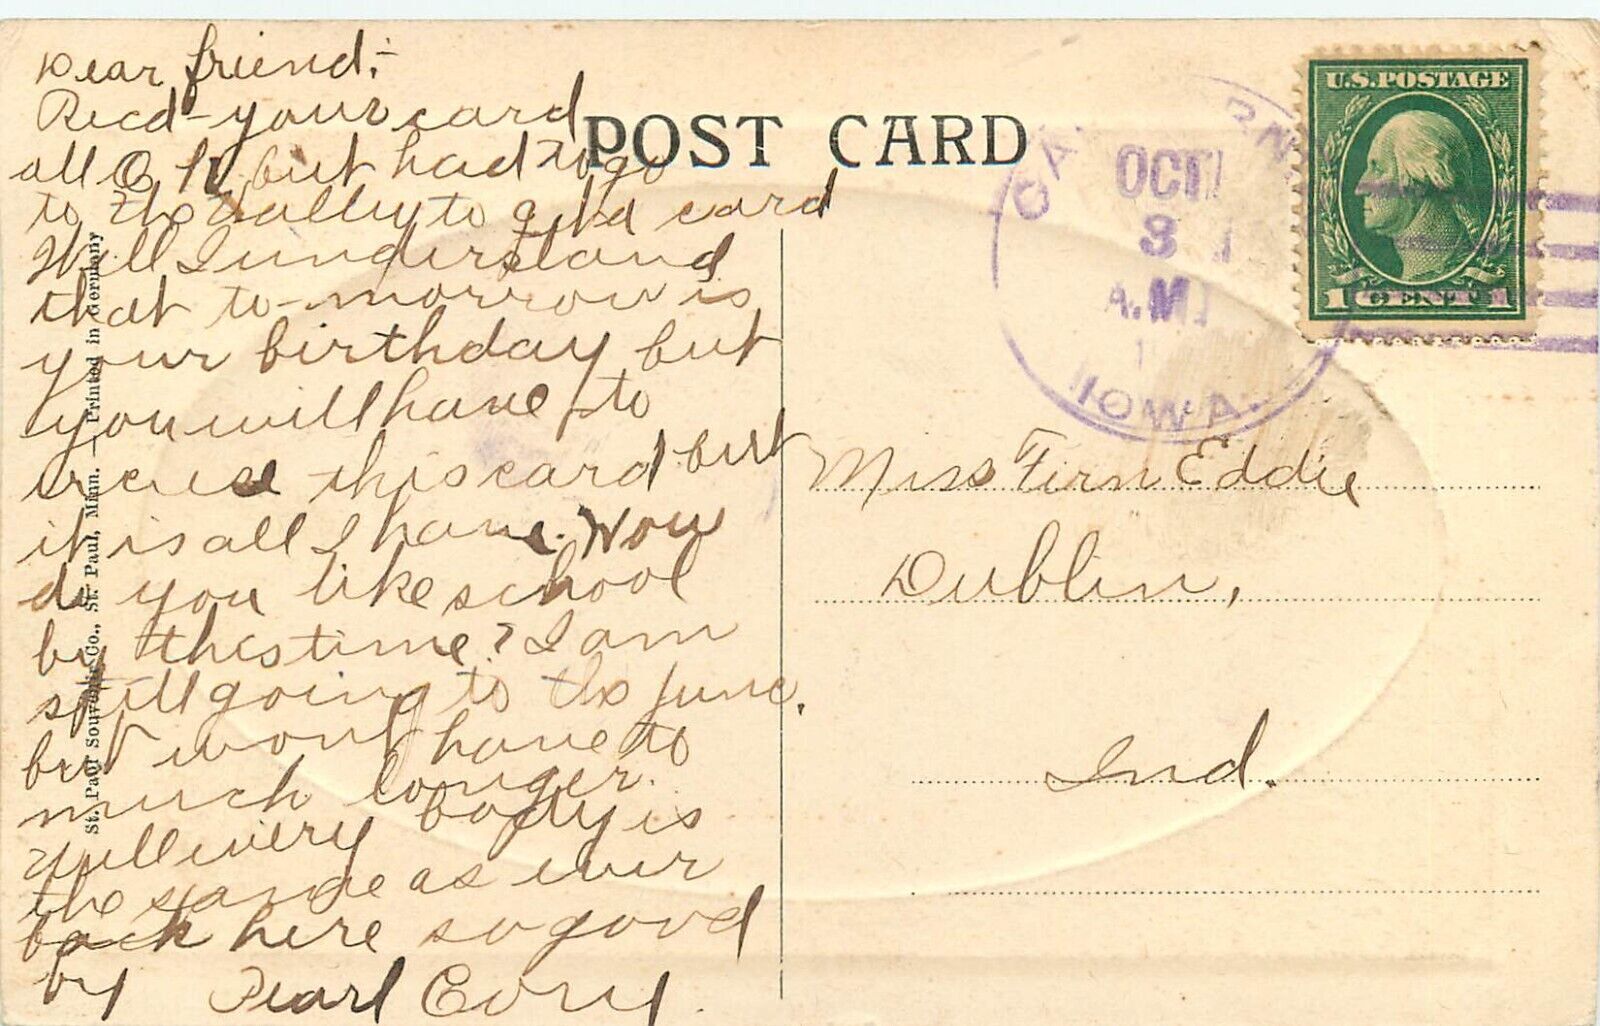 Dear friend:-
Recd- your card
all O.K. but had to go
to the valley to a card
Well I understand
that to-morrow is
your birthday but
you will have to
excuse this card but
it is all I have. Now
do you like school
by this time? I am
still going to the June.
but wont have to
much longer.
Well every body is
the same as ever
back here so good
by Pearl Cory.
POST CARD
U.S. POSTAGE
1 CENT 1
OCT
3
A.M.
IOWA.
Miss Fern Eddie
Dublin,
Ind.
St. Paul Souvenir Co., St. Paul, Minn. — Printed in Germany